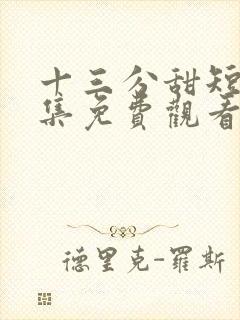 十三分甜短
集免費觀看
德里克-羅斯